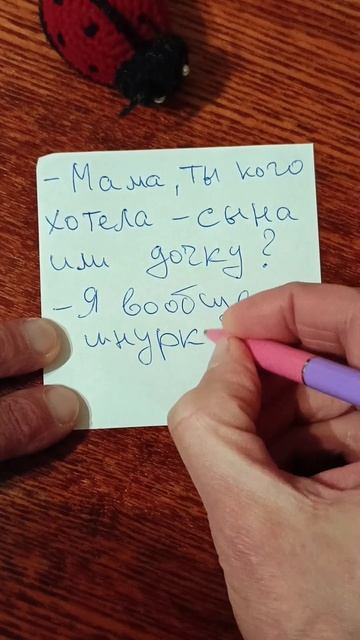 - Мама, ты кого
хотела - сына
или дочку?
- Я вообще
шнурк